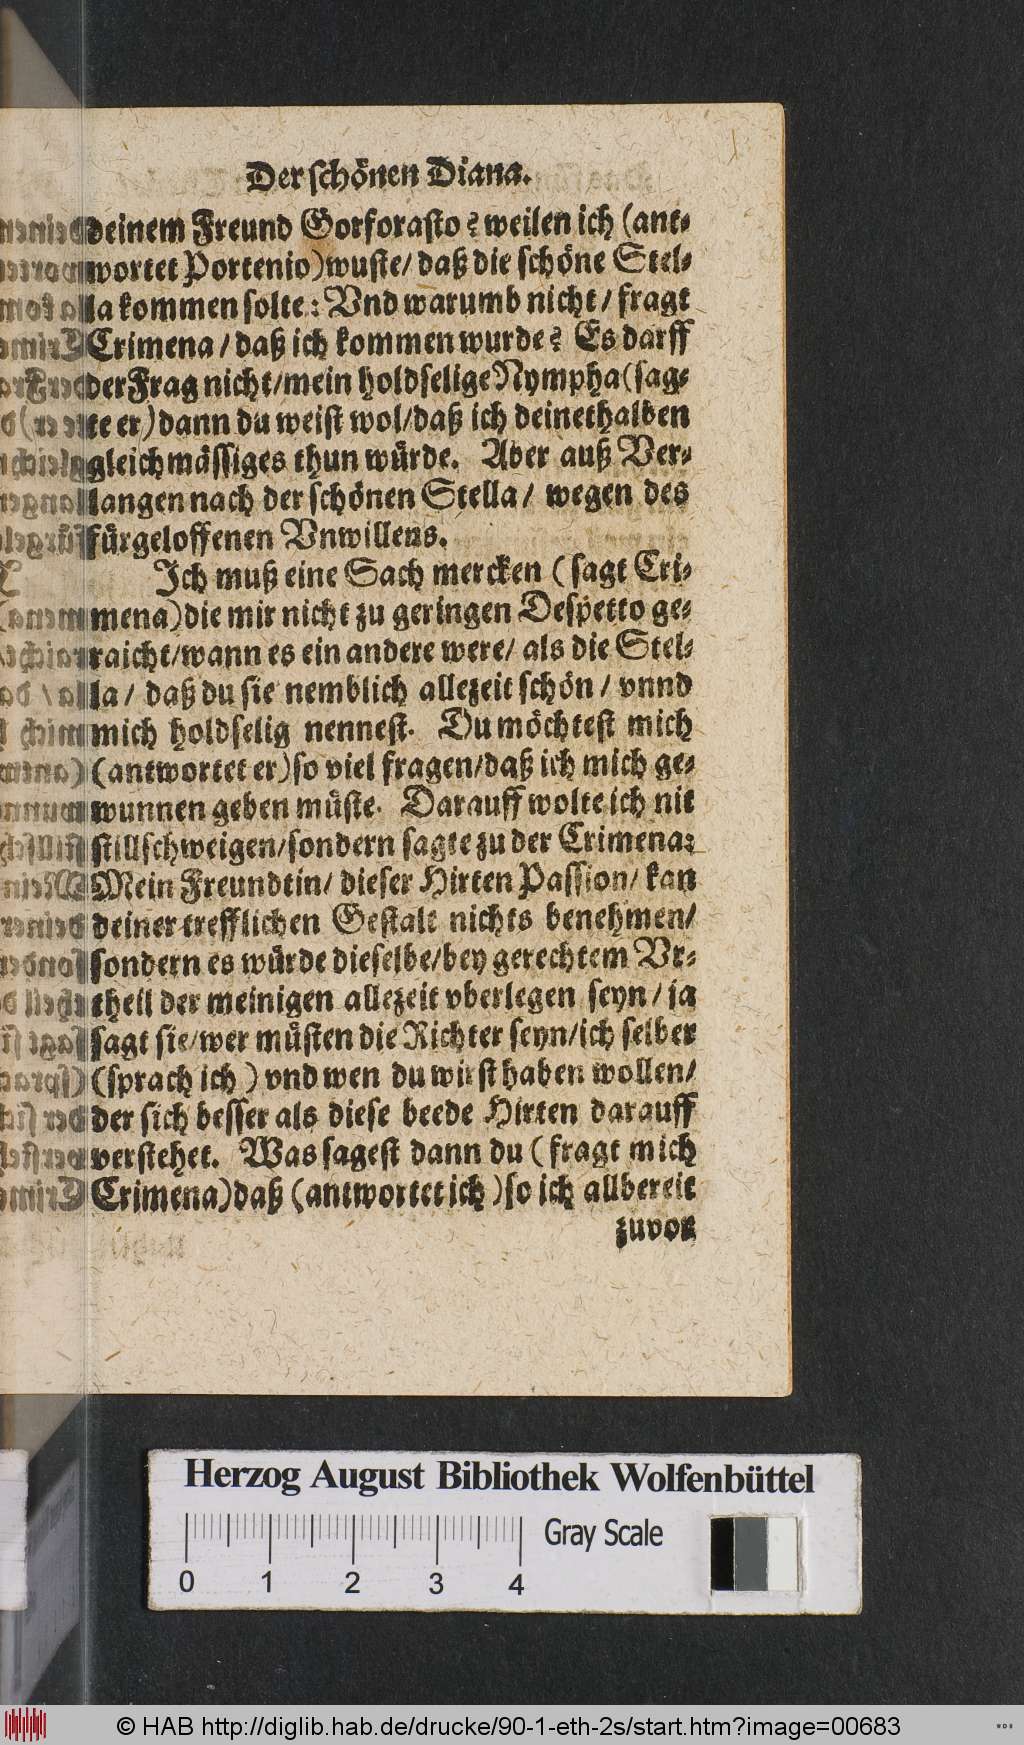 Der schönen Diana.
deinem Freund Gorforasto? weilen ich (ant-
wortet Portenio) wuste/ daß die schöne Stel-
la kommen solte: Vnd warumb nicht/ fragt
Crimena/ daß ich kommen wurde? Es darff
der Frag nicht/ mein holdselige Nympha (sag-
te er) dann du weist wol/ daß ich deinethalben
gleichmässiges thun würde. Aber auß Ver-
langen nach der schönen Stella/ wegen des
fürgeloffenen Vnwillens.
Ich muß eine Sach mercken (sagt Cri-
mena) die mir nicht zu geringen Despetto ge-
raicht/ wann es ein andere were/ als die Stel-
la/ daß du sie nemblich allezeit schön/ vnnd
mich holdselig nennest. Du möchtest mich
(antwortet er) so viel fragen/ daß ich mich ge-
wunnen geben müste. Darauff wolte ich nit
stillschweigen/ sondern sagte zu der Crimena:
Mein Freundtin/ dieser Hirten Passion/ kan
deiner trefflichen Gestalt nichts benehmen/
sondern es würde dieselbe/ bey gerechtem Vr-
theil der meinigen allezeit vberlegen seyn/ ja
sagt sie/ wer müsten die Richter seyn/ ich selber
(sprach ich) vnd wen du wirst haben wollen/
der sich besser als diese beede Hirten darauff
verstehet. Was sagest dann du (fragt mich
Crimena) daß (antwortet ich) so ich allbereit
zuvor
Herzog August Bibliothek Wolfenbüttel
Gray Scale
0 1 2 3 4
© HAB http://diglib.hab.de/drucke/90-1-eth-2s/start.htm?image=00683